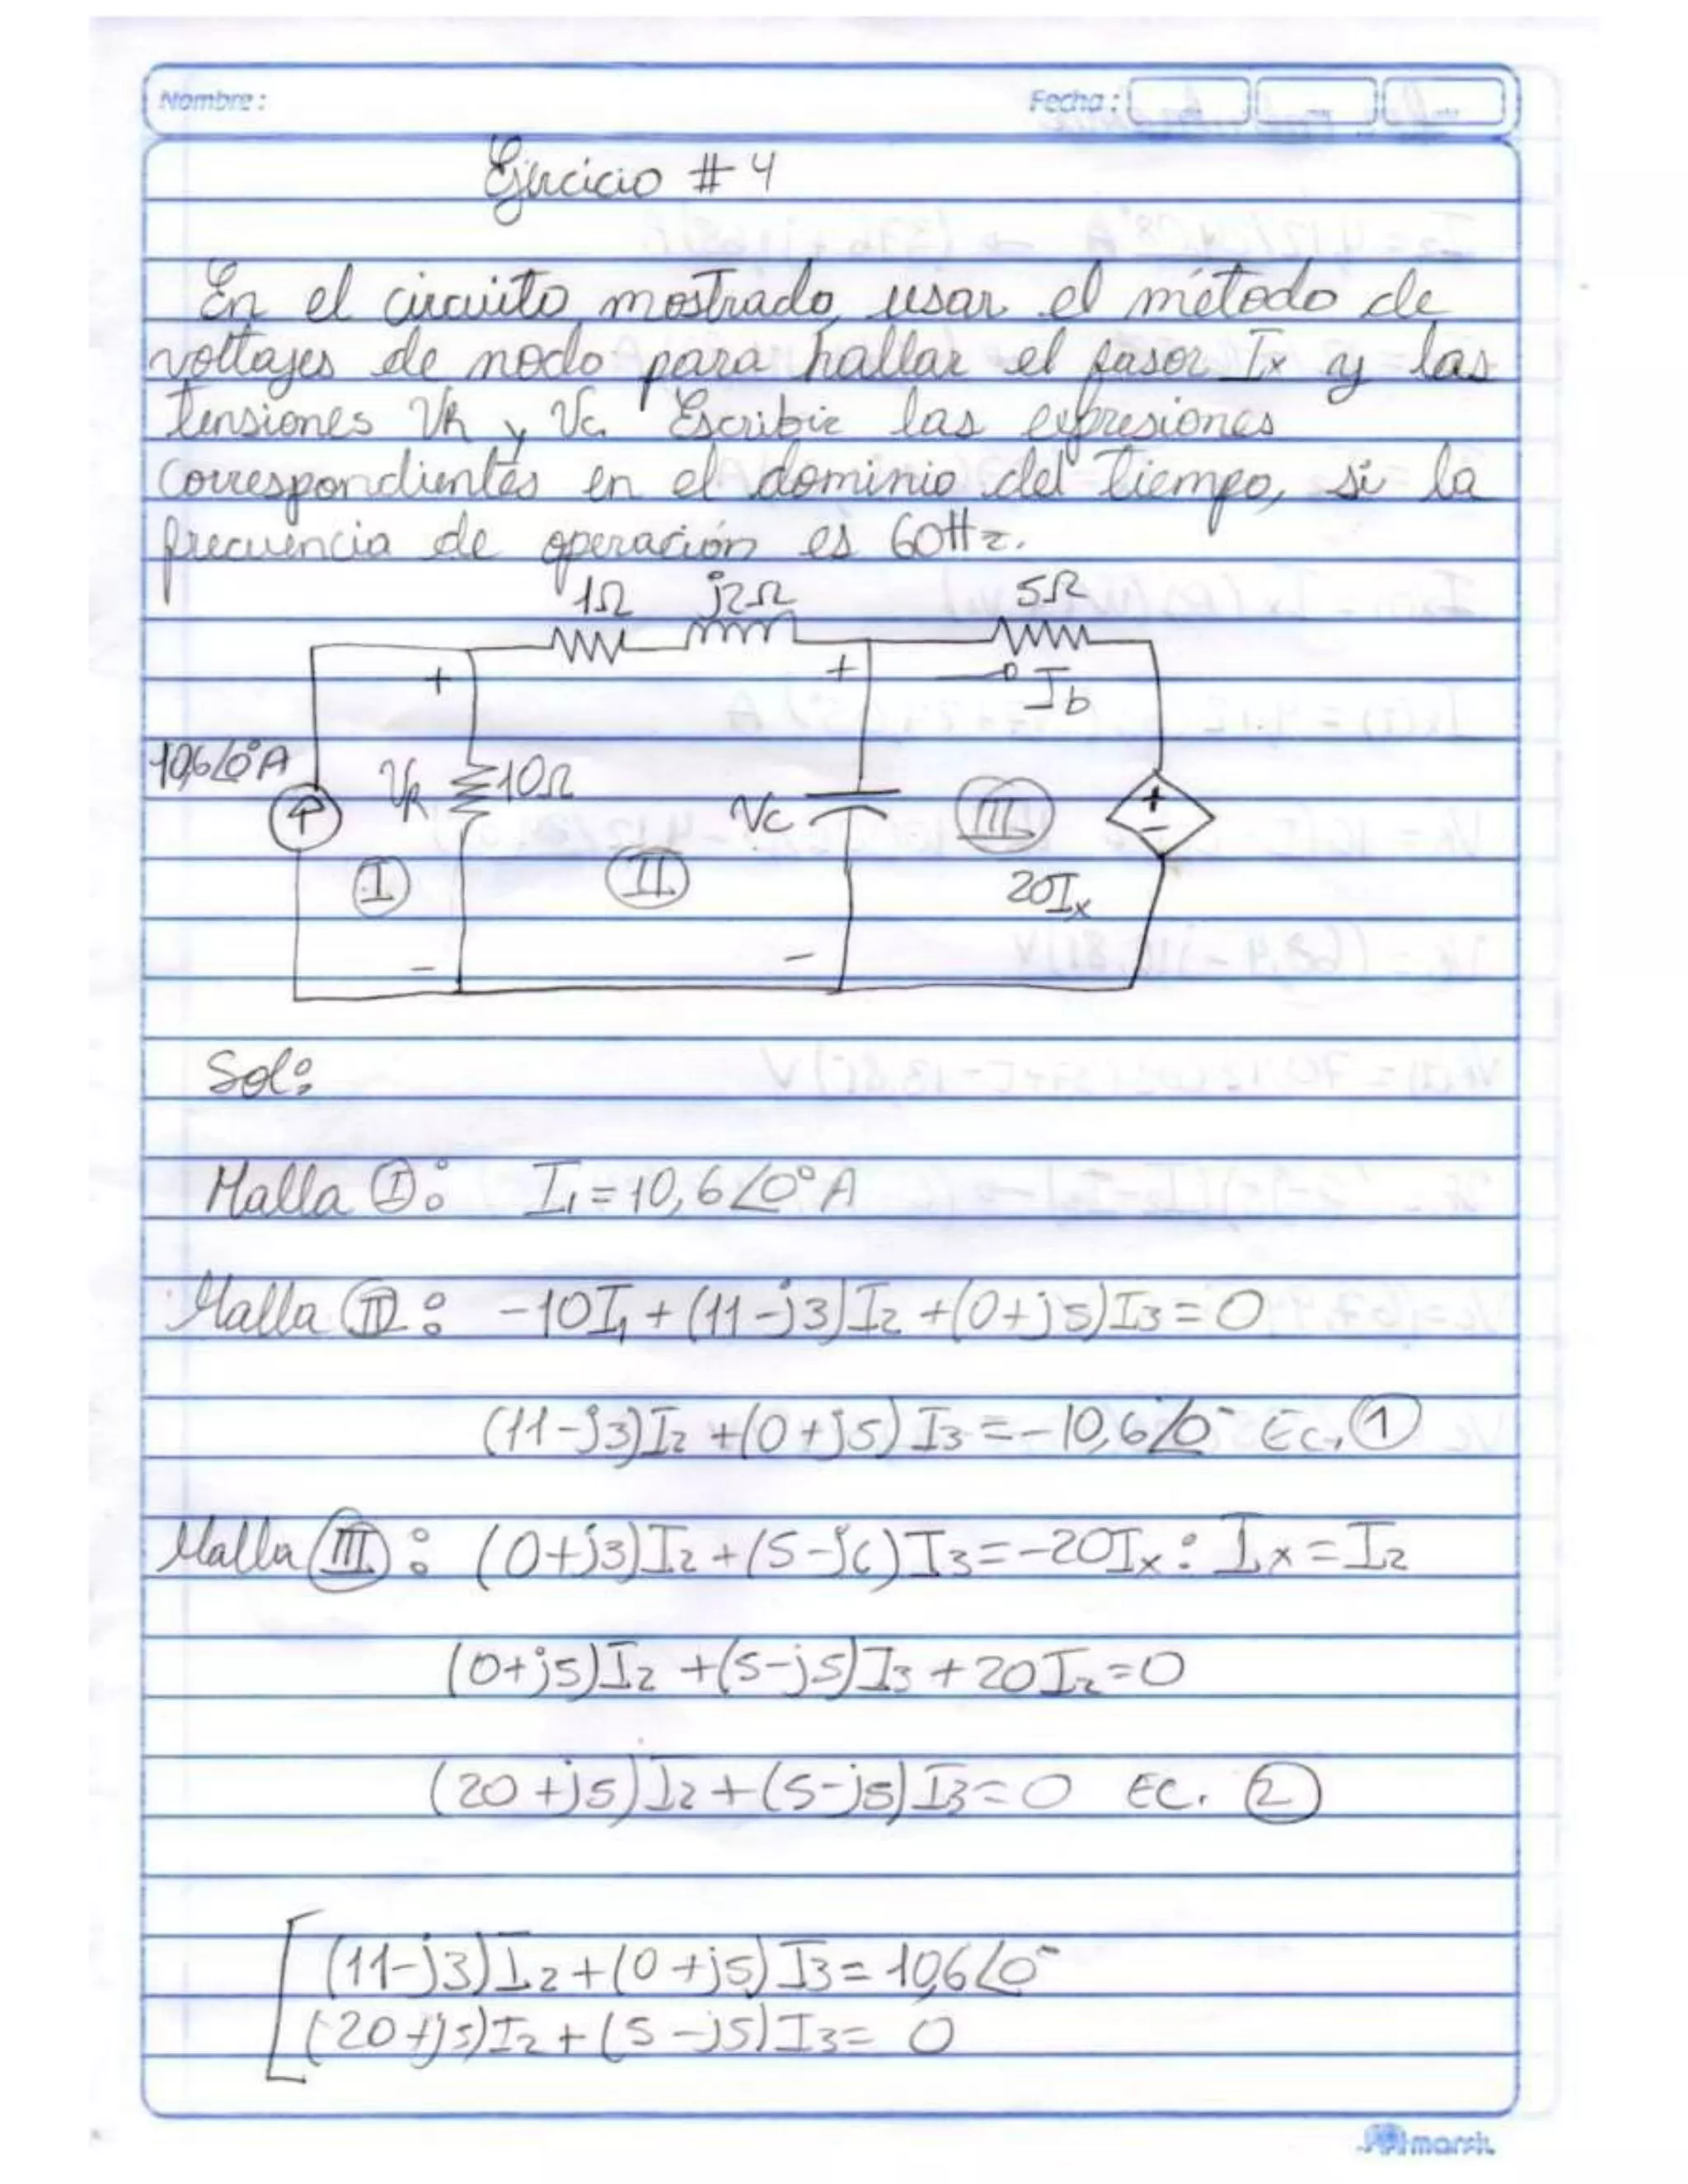 Nombre :
Fecha :
Ejercicio #4
En el circuito mostrado, usar el método de
voltajes de nodo para hallar el fasor Ix y las
tensiones VR y Vc. Escribir las expresiones
correspondientes en el dominio del tiempo, si la
frecuencia de operación es 60Hz.
1Ω j2Ω 5Ω
+ + Ib
10,6∠0°A VR 10Ω Vc III + −
I II 20Ix
− −
Sol:
Malla I: I1 = 10,6∠0°A
Malla II: -10I1 + (11-j3)I2 + (0+j5)I3 = 0
(11-j3)I2 + (0+j5)I3 = -10,6∠0° Ec. 1
Malla III: (0+j3)I2 + (5-j6)I3 = -20Ix : Ix = I2
(0+j5)I2 + (5-j5)I3 + 20I2 = 0
(20+j5)I2 + (5-j5)I3 = 0 EC. 2
(11-j3)I2 + (0+j5)I3 = 10,6∠0°
(20+j5)I2 + (5-j5)I3 = 0